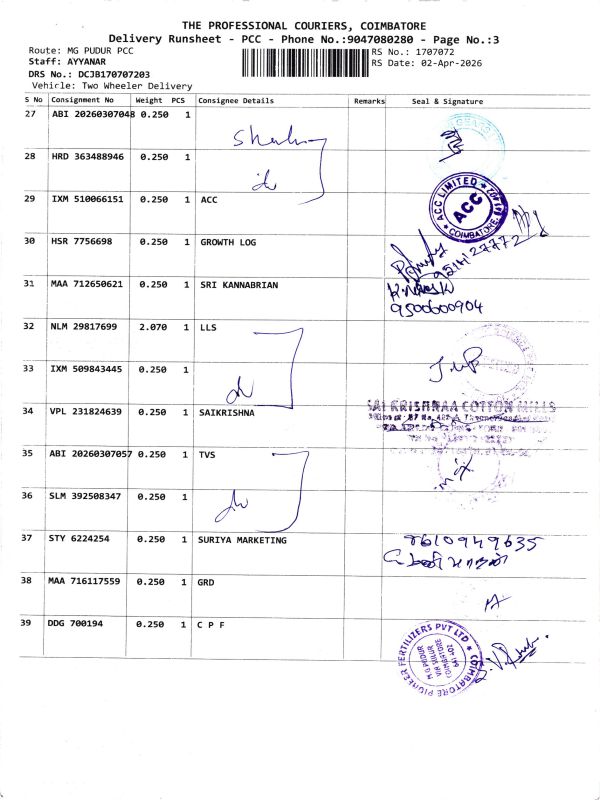 THE PROFESSIONAL COURIERS, COIMBATORE
Delivery Runsheet - PCC - Phone No.:9047080280 - Page No.:3
Route: MG PUDUR PCC
RS No.: 1707072
Staff: AYYANAR
RS Date: 02-Apr-2026
DRS No.: DCJB170707203
Vehicle: Two Wheeler Delivery
S No Consignment No Weight PCS Consignee Details Remarks Seal & Signature
27 ABI 20260307048 0.250 1
28 HRD 363488946 0.250 1
29 IXM 510066151 0.250 1 ACC
ACC LIMITED ACC COIMBATORE
30 HSR 7756698 0.250 1 GROWTH LOG
31 MAA 712650621 0.250 1 SRI KANNABRIAN
9500600904
32 NLM 29817699 2.070 1 LLS
33 IXM 509843445 0.250 1
34 VPL 231824639 0.250 1 SAIKRISHNA
SAI KRISHNAA COTTON MILLS
35 ABI 20260307057 0.250 1 TVS
36 SLM 392508347 0.250 1
37 STY 6224254 0.250 1 SURIYA MARKETING
38 MAA 716117559 0.250 1 GRD
39 DDG 700194 0.250 1 C P F
COIMBATORE PIONEER FERTILIZERS PVT LTD
M.G PUDUR
COIMBATORE